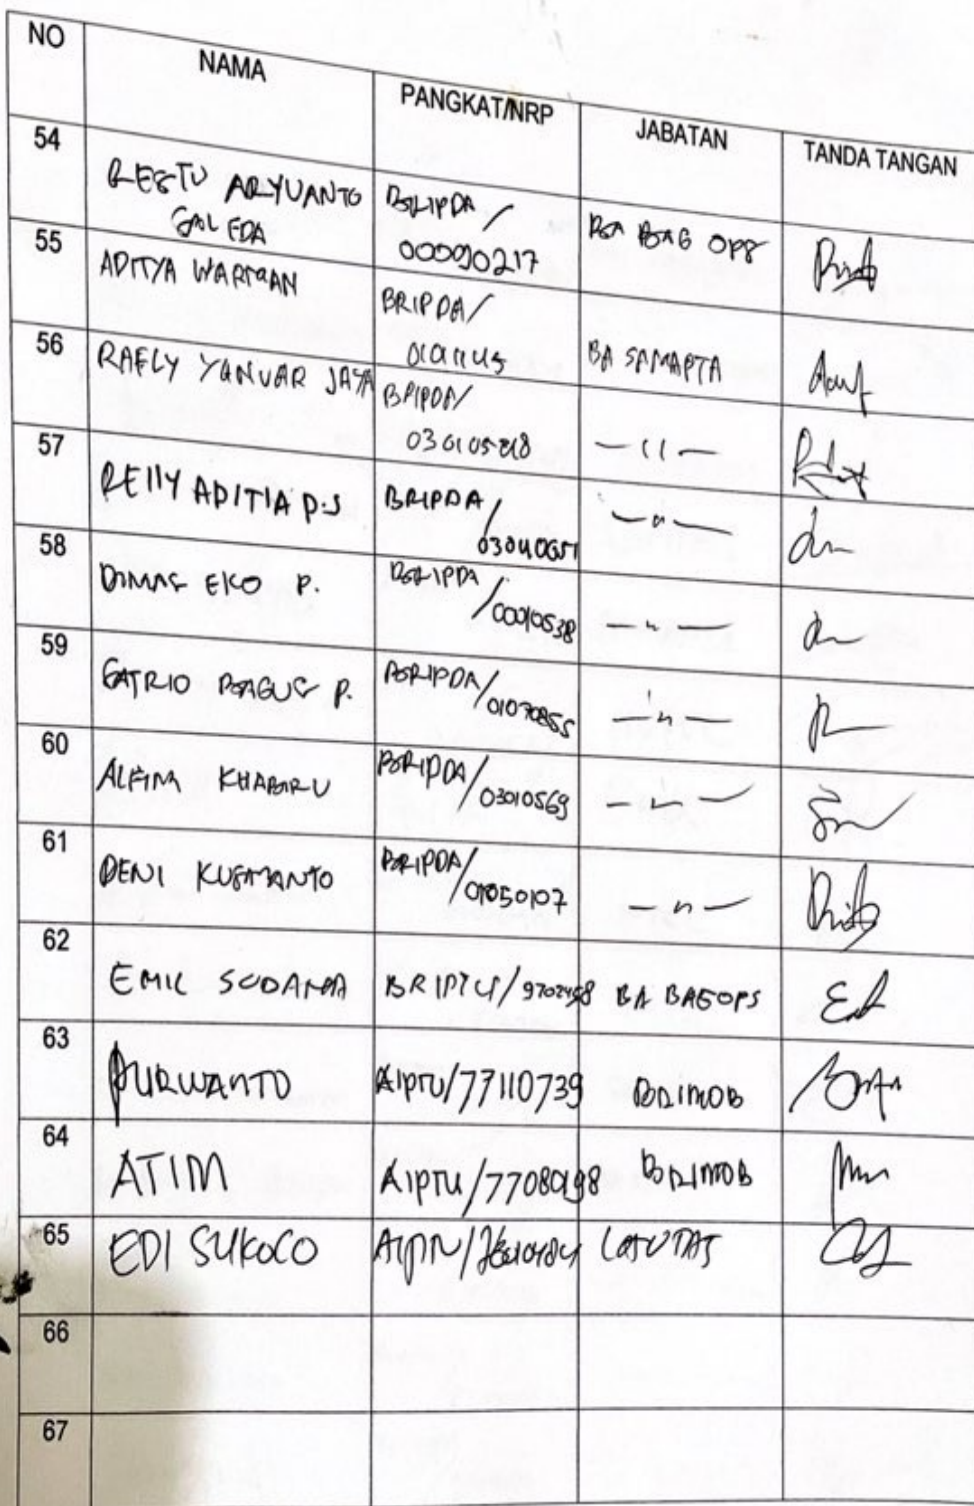 NO NAMA PANGKAT/NRP JABATAN TANDA TANGAN
54 RESTU ARYUANTO BRIPDA / BA BAG OPS
GALEDA 000090217
55 ADITYA WARMAN BRIPDA/
BA SAMAPTA
56 RAELY YANUAR JAYA BRIPDA/
-〃-
57 RELLY ADITIA P.S BRIPDA / -〃-
58 DIMAS EKO P. BRIPDA /00010538 -〃-
59 SATRIO BAGUS P. BRIPDA/01070855 -〃-
60 KHABIRU BRIPDA/03010569 -〃-
61 DENI KUSMANTO BRIPDA/01050107 -〃-
62 EMIL BRIPTU/ BA BAGOPS
63 PURWANTO AIPTU/77110739 BRIMOB
64 ATIM AIPTU/77080198 BRIMOB
65 EDI SUKOCO AIPTU/
66
67